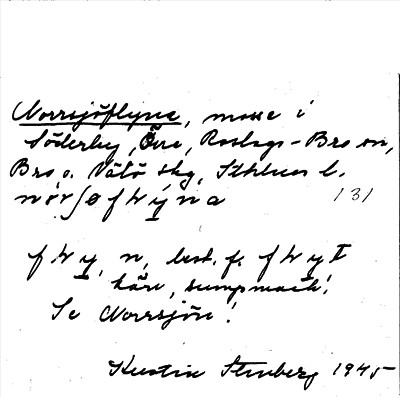 Norrsjöflyna, mosse i
Söderby, Övre, Roslags-Bro sn,
Bro o. Vätö skg, Sthlms l.
nòrʃøfłýna 131
fły, n, best. f. fłyt
kärr, sumpmark.
Se Norrsjön!
Kerstin Stenberg 1945